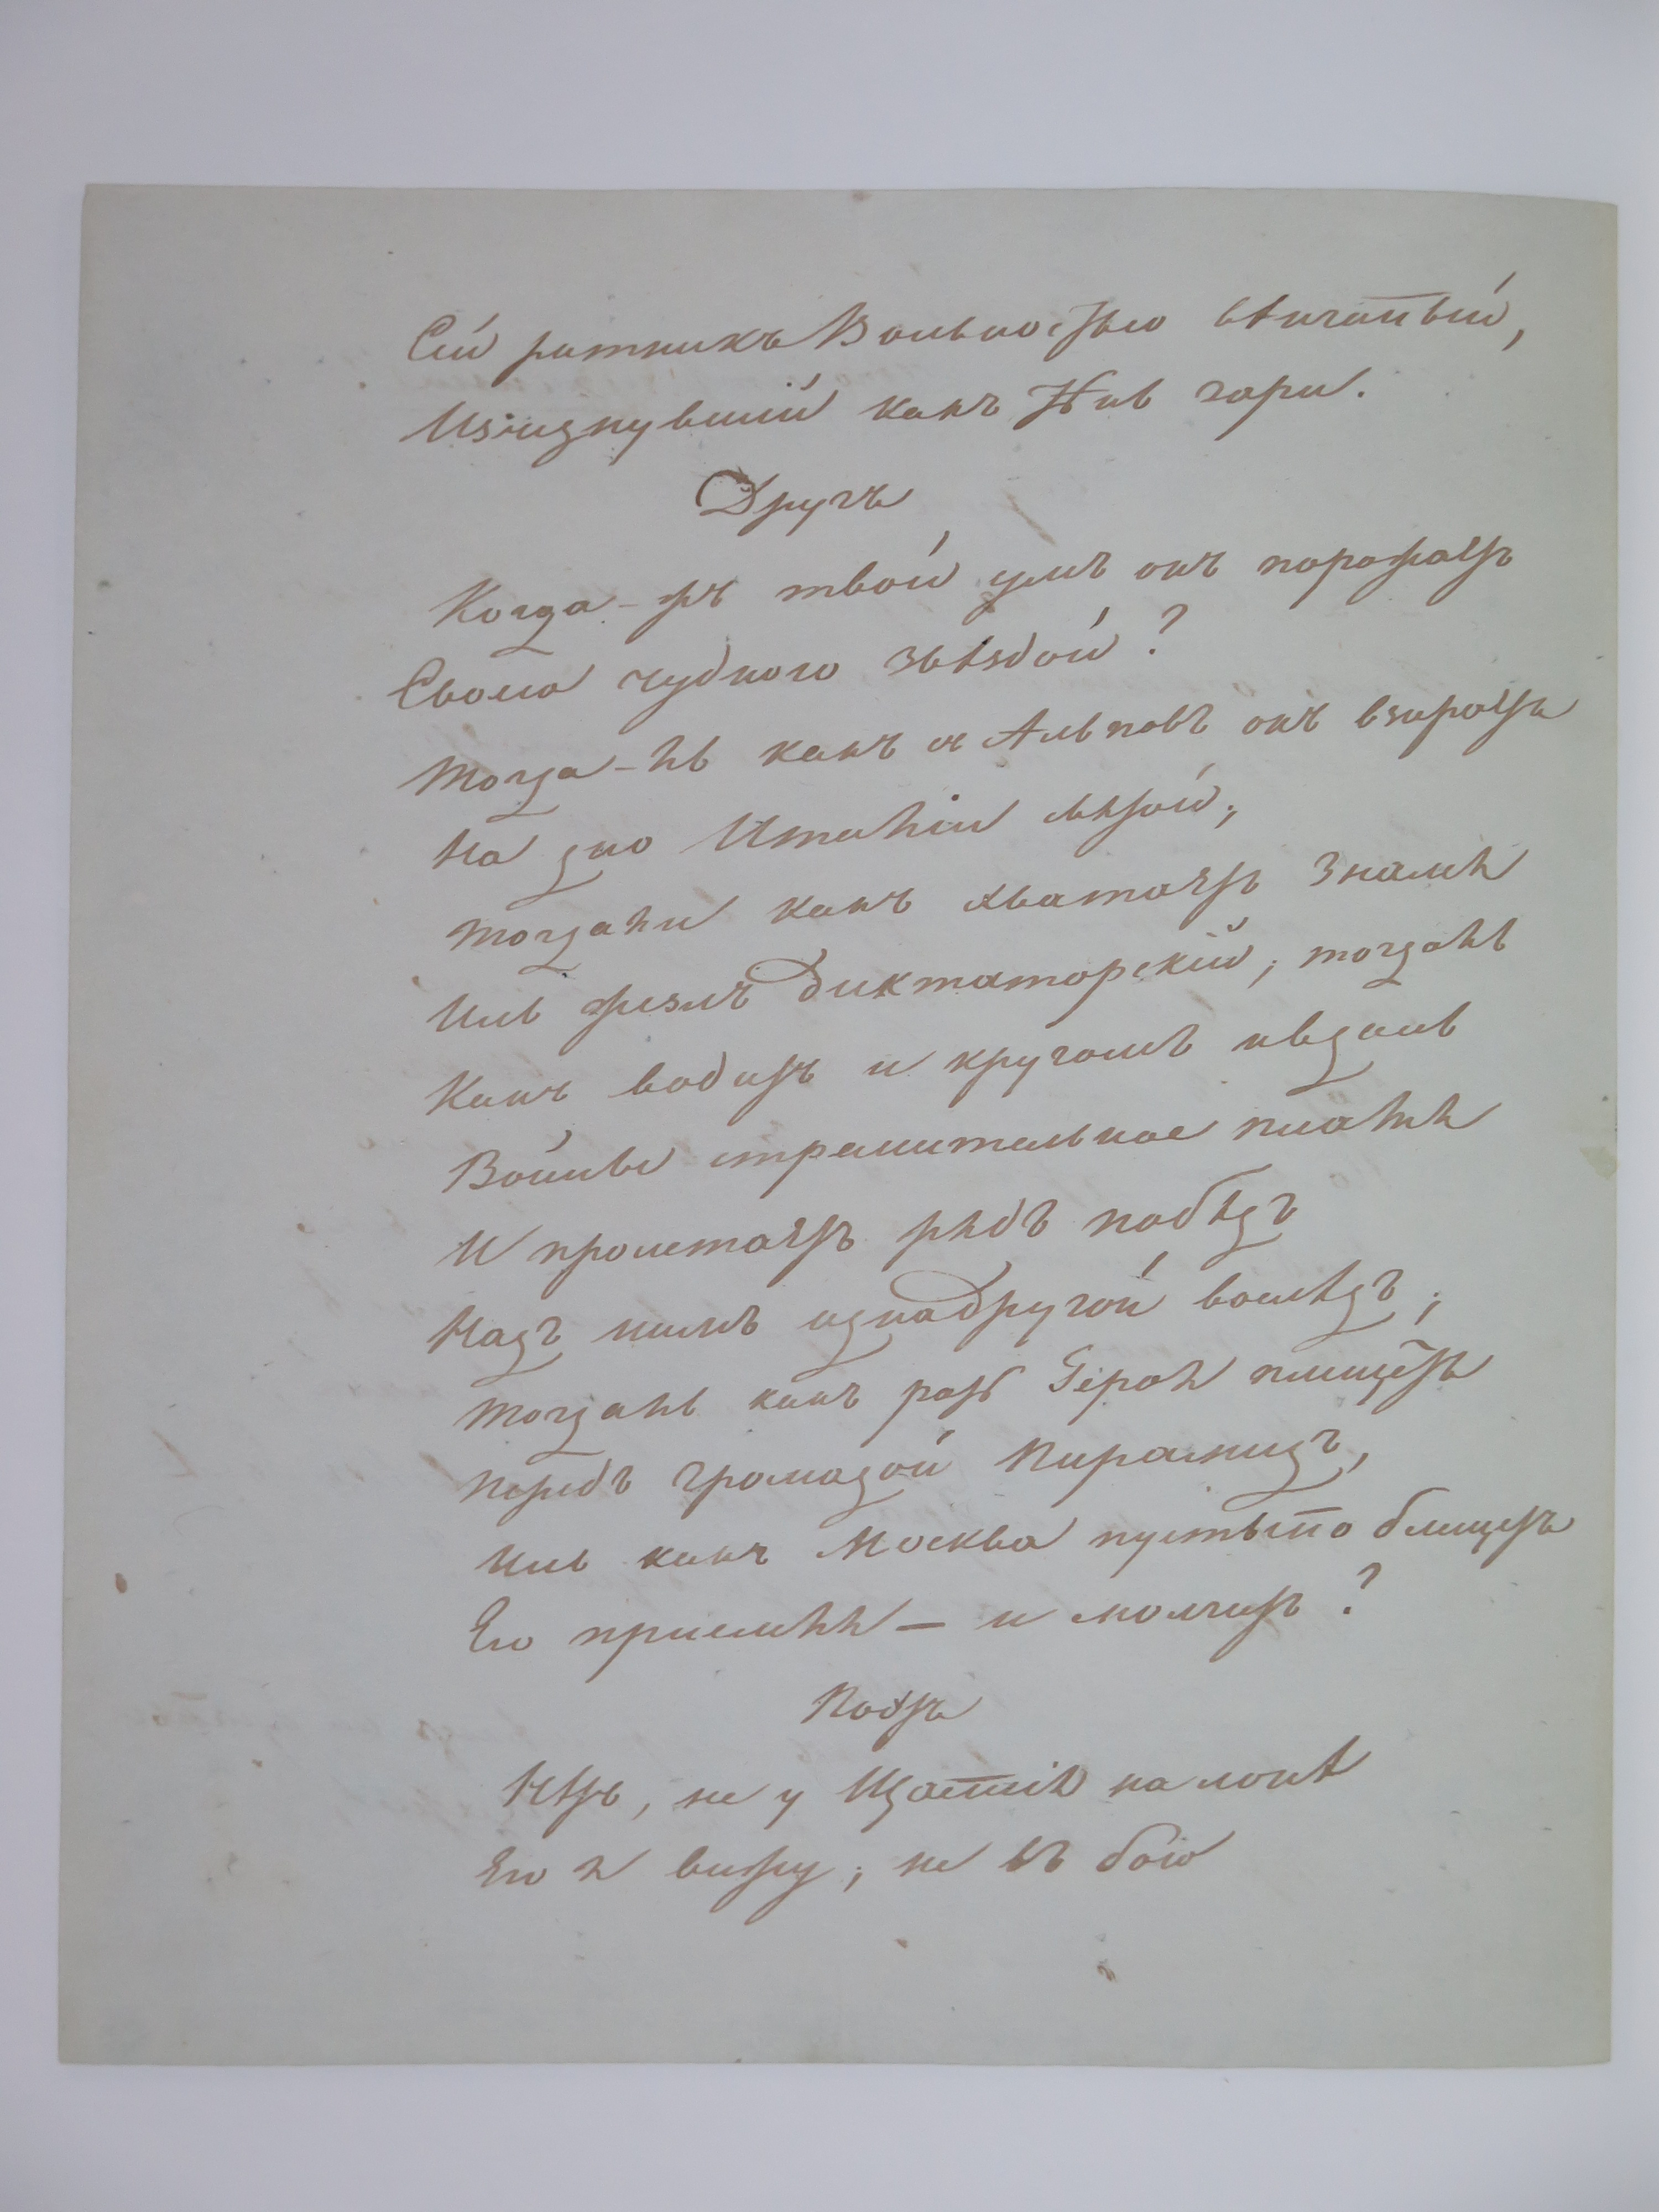 Сѣй ратникъ Вольностью вѣнчанный,
Изчезнувшій какъ тѣнь зари.
Другъ
Когда-жъ твой умъ онъ поражаетъ
Своею чудною звѣздой?
Тогда-ль какъ съ Альповъ онъ взираетъ
На дно Италіи святой;
Тогда ли какъ хватаетъ знамя
Иль жезлъ диктаторскій; тогдаль
Какъ водитъ и кругомъ и вдаль
Войны стремительное пламя
И пролетаетъ рядъ побѣдъ
Надъ нимъ одна другой вослѣдъ;
Тогдаль какъ рать Героя плещетъ
Передъ громадой Пирамидъ,
Иль какъ Москва пустынно блещетъ
Его пріемля — и молчитъ?
Поэтъ
Нѣтъ, не у Щастія на лонѣ
Его я вижу; не въ бою